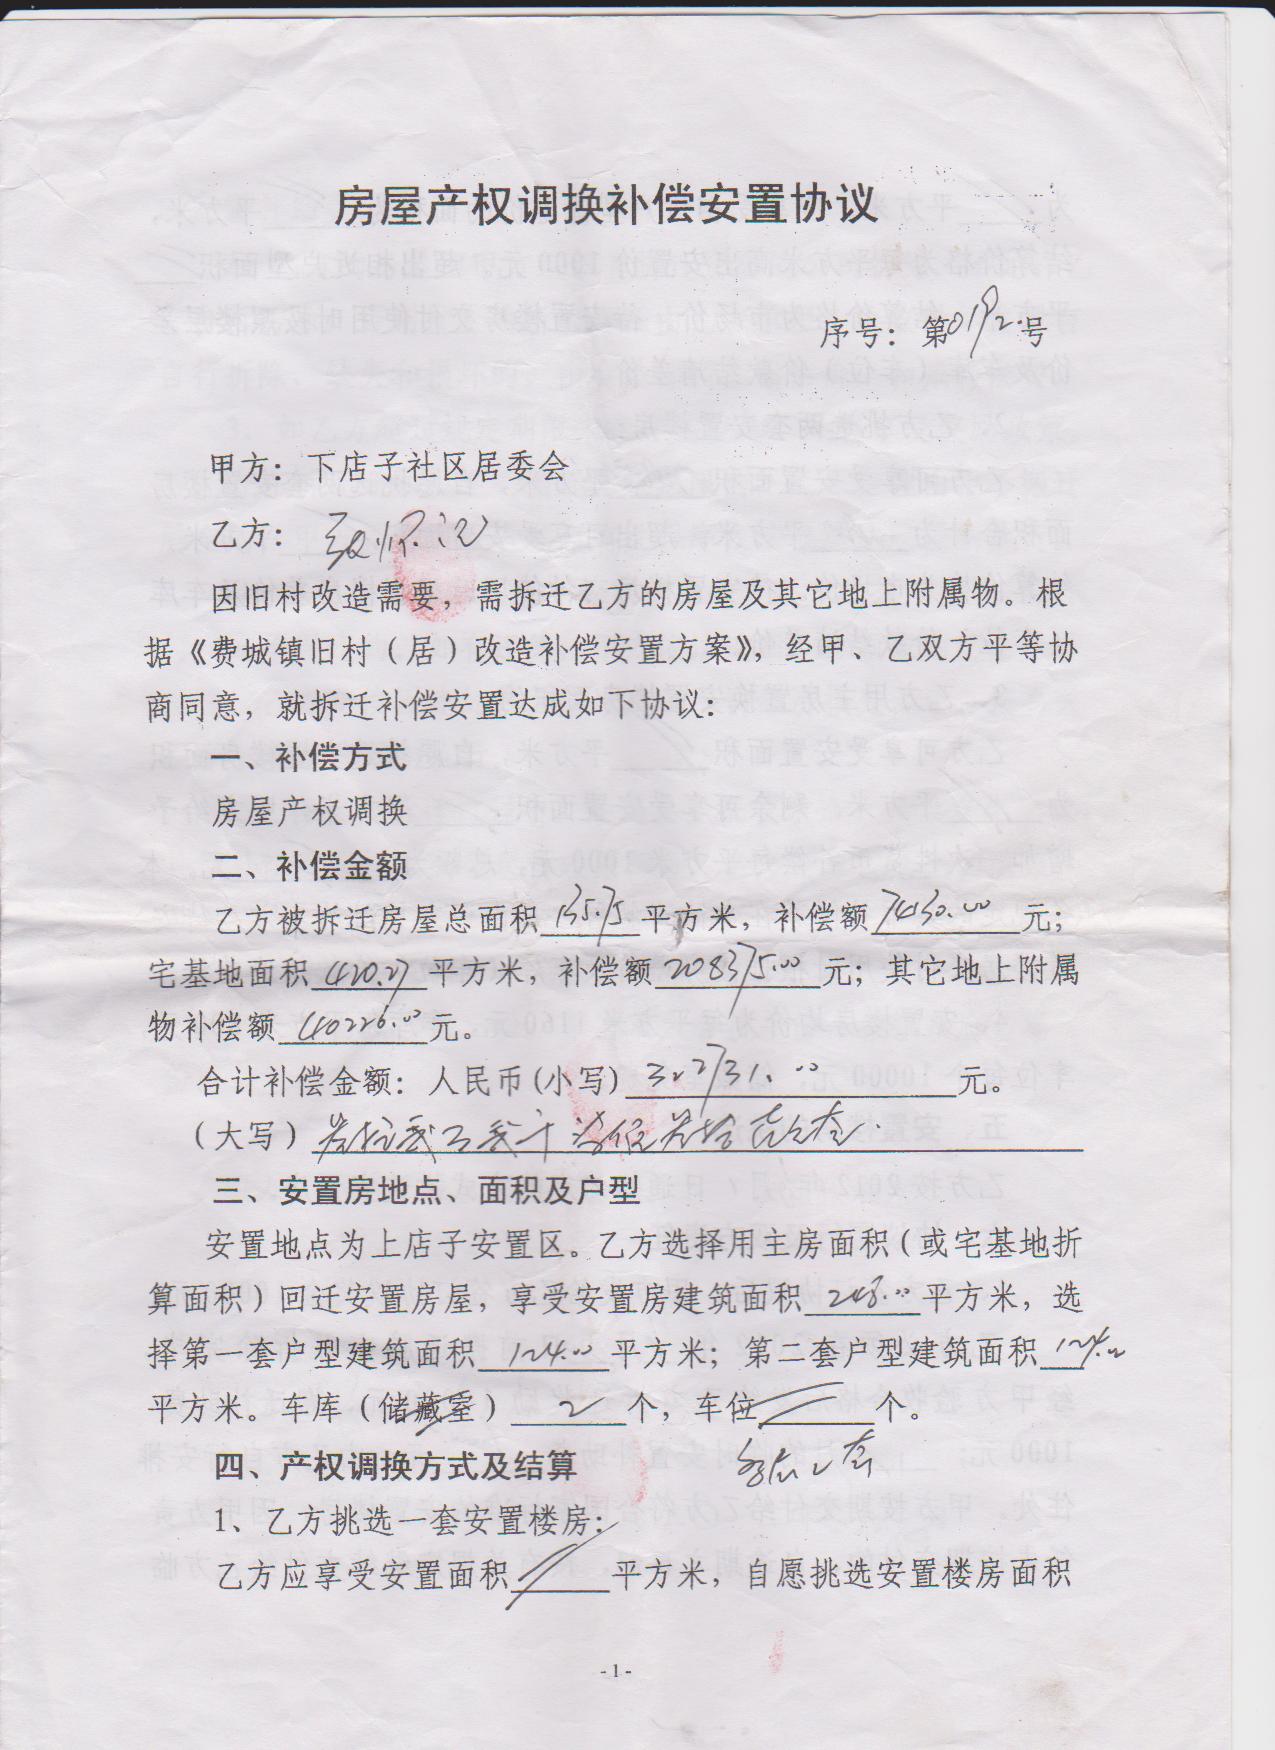 房屋产权调换补偿安置协议
序号：第0192号
甲方：下店子社区居委会
乙方：
因旧村改造需要，需拆迁乙方的房屋及其它地上附属物。根
据《费城镇旧村（居）改造补偿安置方案》，经甲、乙双方平等协
商同意，就拆迁补偿安置达成如下协议：
一、补偿方式
房屋产权调换
二、补偿金额
乙方被拆迁房屋总面积 135.75 平方米，补偿额 74130.00 元；
宅基地面积 420.27 平方米，补偿额 208375.00 元；其它地上附属
物补偿额 40226.00 元。
合计补偿金额：人民币(小写) 322731.00 元。
（大写）叁拾贰万贰千柒佰叁拾壹元整
三、安置房地点、面积及户型
安置地点为上店子安置区。乙方选择用主房面积（或宅基地折
算面积）回迁安置房屋，享受安置房建筑面积 248.00 平方米，选
择第一套户型建筑面积 124.00 平方米；第二套户型建筑面积 124.00
平方米。车库（储藏室） 2 个，车位 个。
四、产权调换方式及结算
1、乙方挑选一套安置楼房：
乙方应享受安置面积 平方米，自愿挑选安置楼房面积
- 1 -